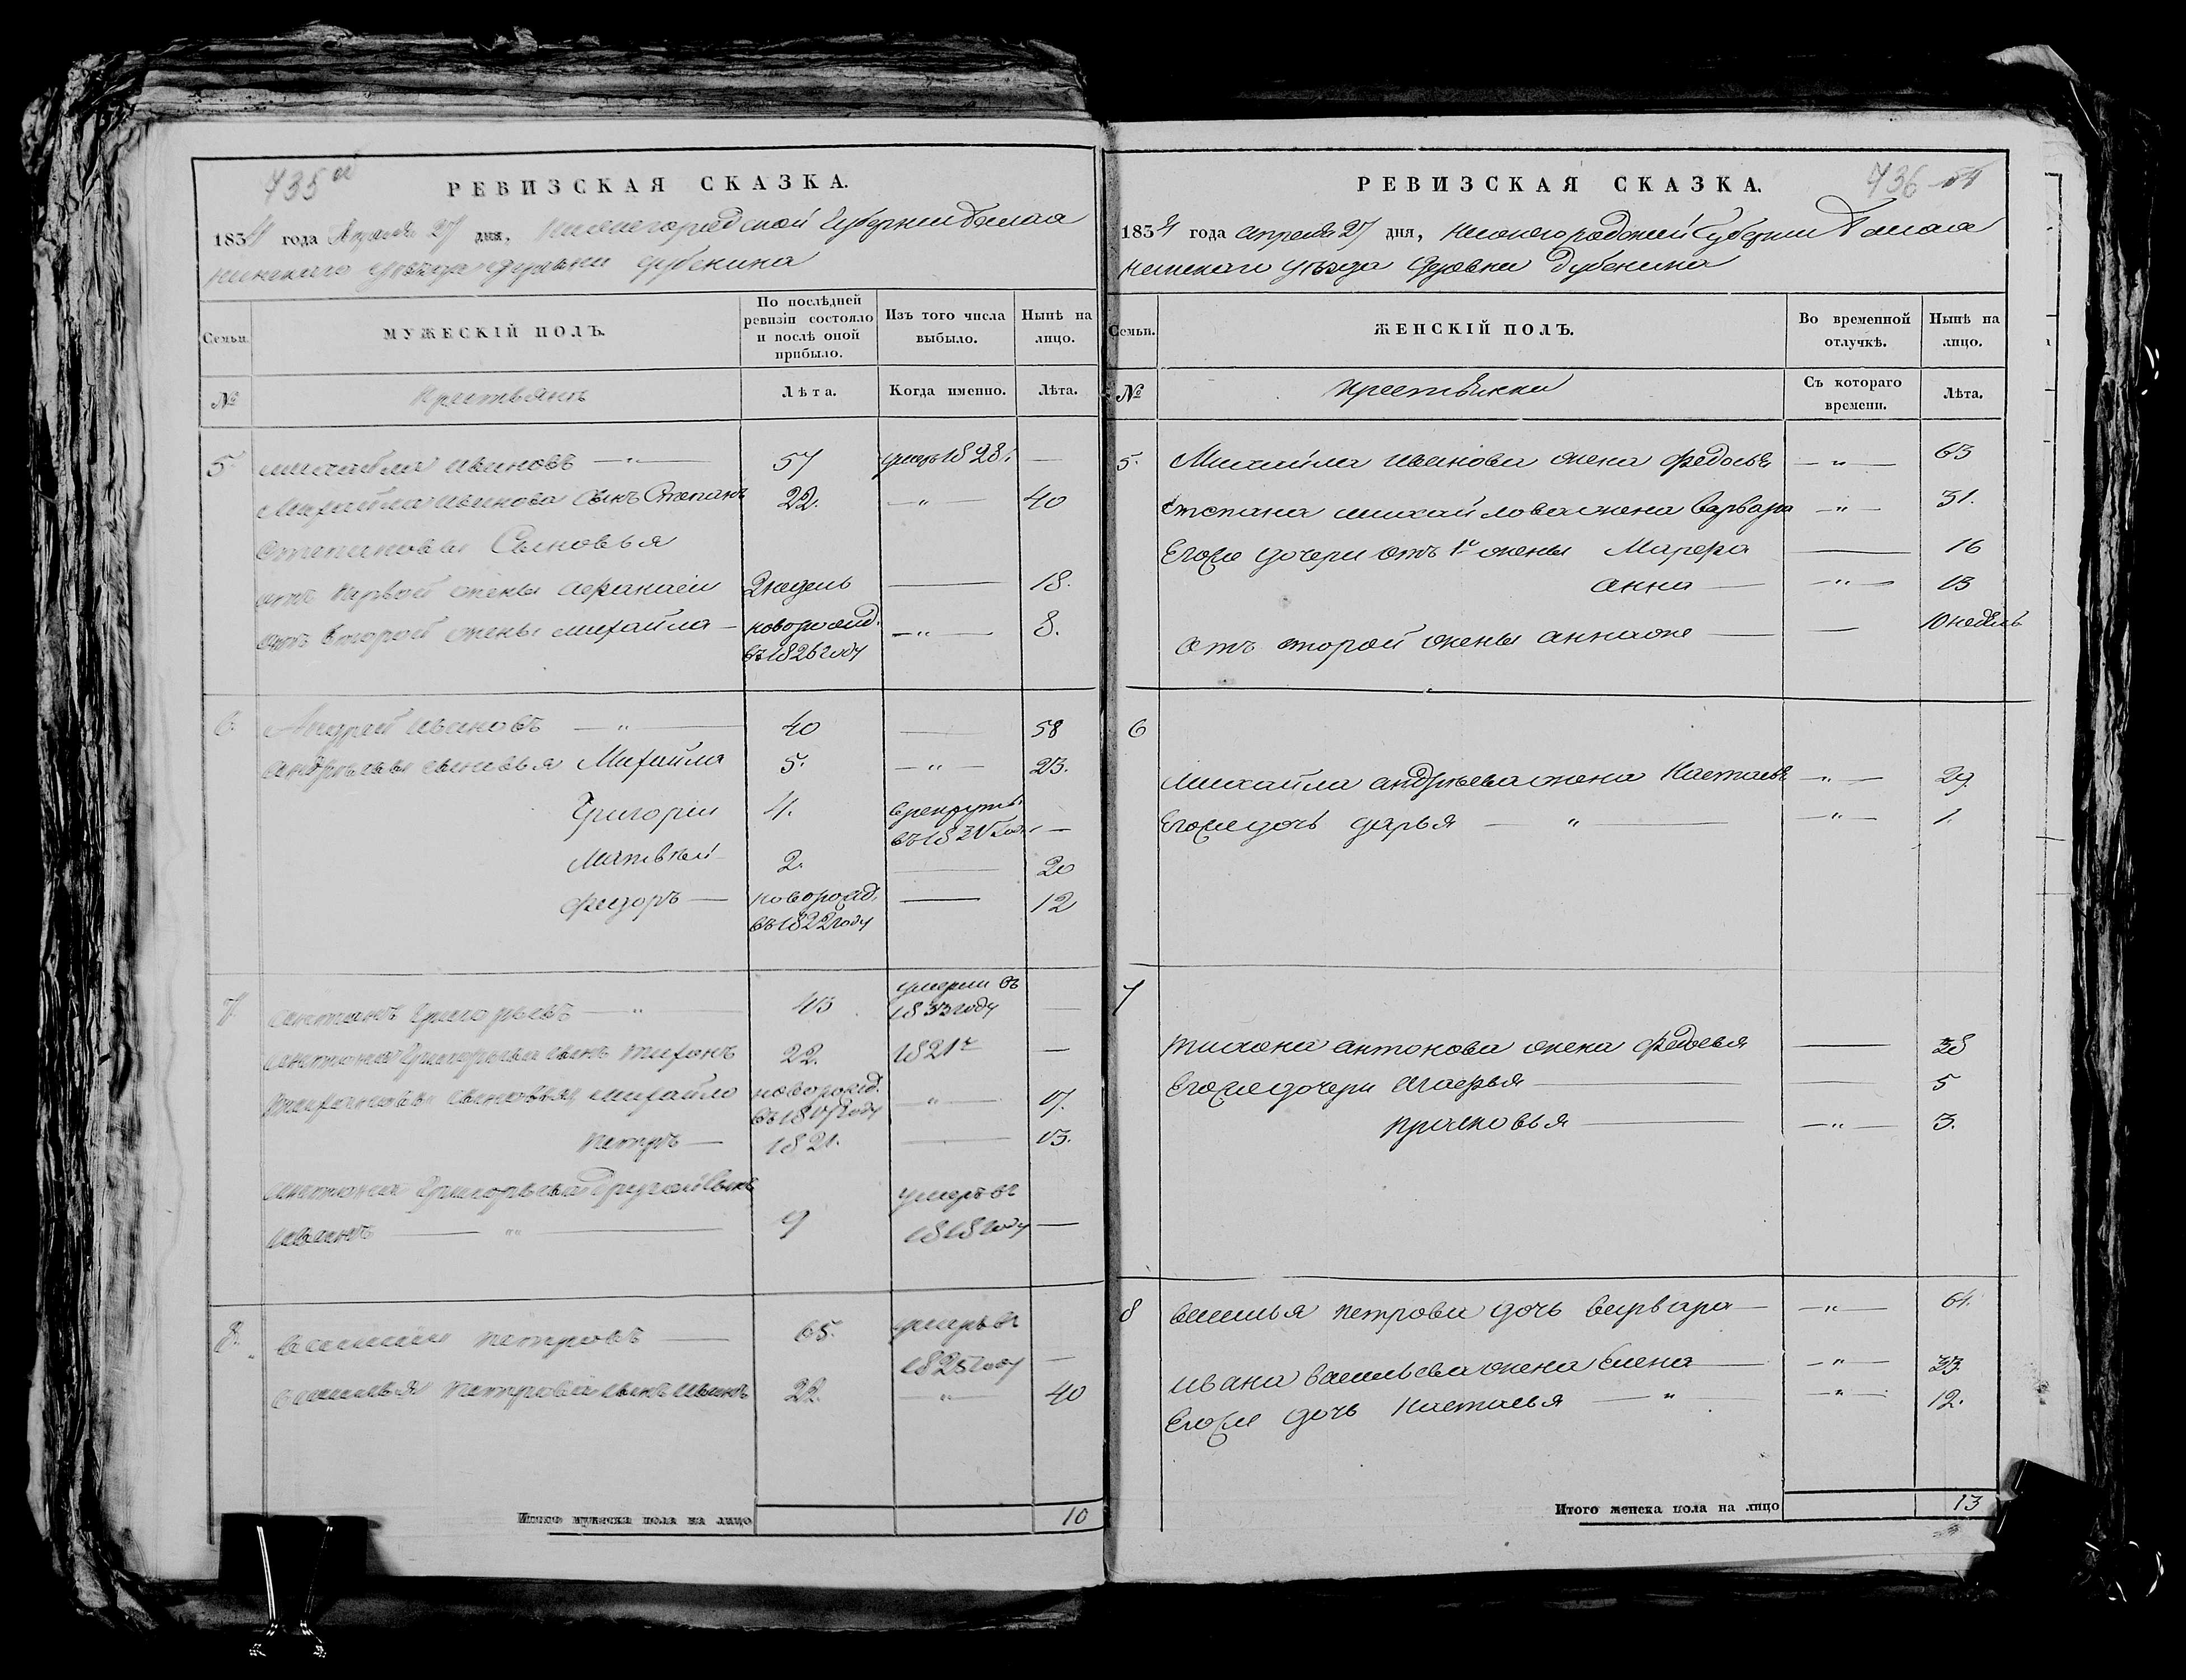 735
РЕВИЗСКАЯ СКАЗКА.
1834 года Апреля 27 дня, Нижегородской Губернии Балах
нинскаго уезда деревни Дубенина
Семьи.
МУЖЕСКІЙ ПОЛЪ.
По послѣдней ревизіи состояло и послѣ оной прибыло.
Изъ того числа выбыло.
Нынѣ на лицо.
№
Крестьянъ
Лѣта.
Когда именно.
Лѣта.
5. Михайла Ивановъ — 57 умеръ 1828. —
Михайла Иванова сынъ Степанъ 22. — 40
Степановы Сыновья
отъ первой жены Афанасiи 2 недель — 18.
отъ второй жены Михайла — новорожд. — 8.
въ 1826 году
6. Андрей Ивановъ — 40 — 58
Андреевы сыновья Михайла 5. — 23.
Григорiи 4. в рекруты
въ 1831 году —
Матвей 2. — 20
Федоръ — новорожд. — 12
въ 1822 году
7. Антонъ Григорьевъ — 43 умерли въ —
1833 году
Антона Григорьева сынъ Тихонъ 22. 1821 г —
Тихоновы сыновья Михайло новорожд. — 17.
въ 1817 году
Петръ — 1821. — 13.
Антона Григорьева другой сынъ умеръ въ
Иванъ — 9 1818 году —
8. Василiи Петровъ — 65. умеръ въ
1825 году —
Василья Петрова сынъ Иванъ 22. — 40
Итого мужеска пола на лицо 10
736
РЕВИЗСКАЯ СКАЗКА.
1834 года апреля 27 дня, Нижегородской Губернии Балах
нинскаго уезда деревни Дубенина
Семьи.
ЖЕНСКІЙ ПОЛЪ.
Во временной отлучкѣ.
Нынѣ на лицо.
№
Крестьянки
Съ котораго времени.
Лѣта.
5. Михайла Иванова жена Федосья — 63
Степана Михайлова жена Варвара — 31.
Егоже дочери отъ 1й жены Марфа — 16
Анна — 13
Отъ второй жены Анна же — 10 недель
6
Михайла Андреева жена Настасья — 29.
Егоже дочь Дарья — 1.
7
Тихона Антонова жена Федосья — 38
Егоже дочери Марья — 5
Прасковья — 3.
8 Василья Петрова дочь Варвара — 61.
Ивана Васильева жена Елена — 33.
Егоже дочь Настасья — 12.
Итого женска пола на лицо 13